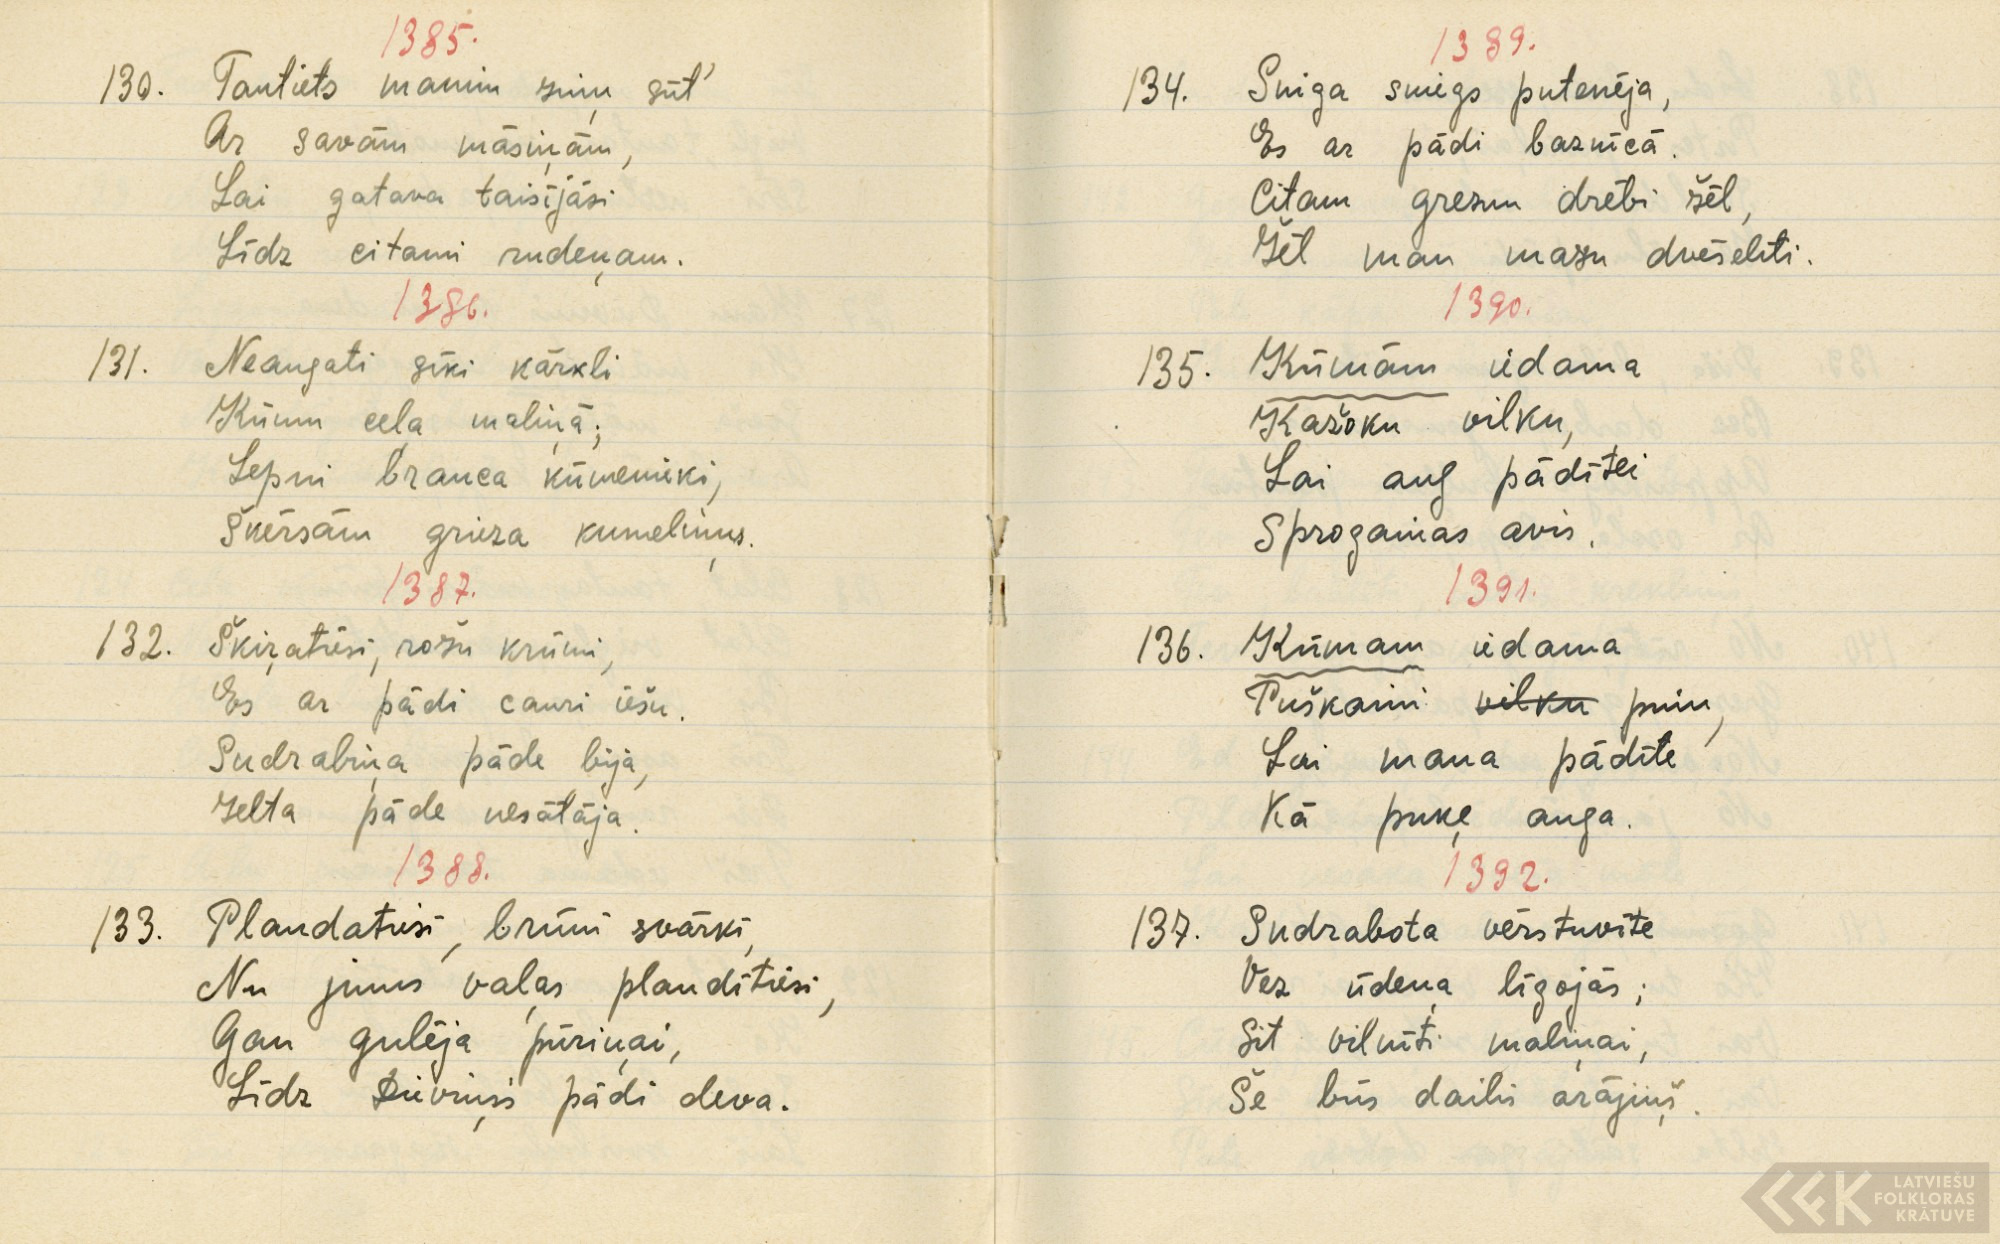 1385.
130. Tautiets manim ziņu sūt'
Ar savām māsiņām,
Lai gatava taisījāsi
Līdz citami rudeņam.
1386.
131. Neaugati sīki kārkli
Kūmu ceļa maliņā;
Lepni brauca kūmenieki,
Škērsām grieza kumeliņus.
1387.
132. Škiŗatiesi, rožu krūmi,
Es ar pādi cauri iešu.
Sudrabiņa pāde bija,
Zelta pāde nesātāja.
1388.
133. Plaudatiesi, brūni svārki,
Nu jums vaļas plaudītiesi,
Gan gulēja pūriņai,
Līdz Dieviņis pādi deva.
1389.
134. Sniga sniegs putenēja,
Es ar pādi baznīcā.
Citam greznu drēbi žēl,
Žēl man mazu dvēselīti.
1390.
135. Kūmām iedama
Kažoku vilku,
Lai aug pādītei
Sprogainas avis.
1391.
136. Kūmam iedama
Puškaini vilku pinu,
Lai mana pādīte
Kā puķe auga.
1392.
137. Sudrabota vērstuvīte
Vez ūdeņa līgojās;
Sit vilnīti maliņai,
Še būs dailis arājiņš.
LATVIEŠU
FOLKLORAS
KRĀTUVE